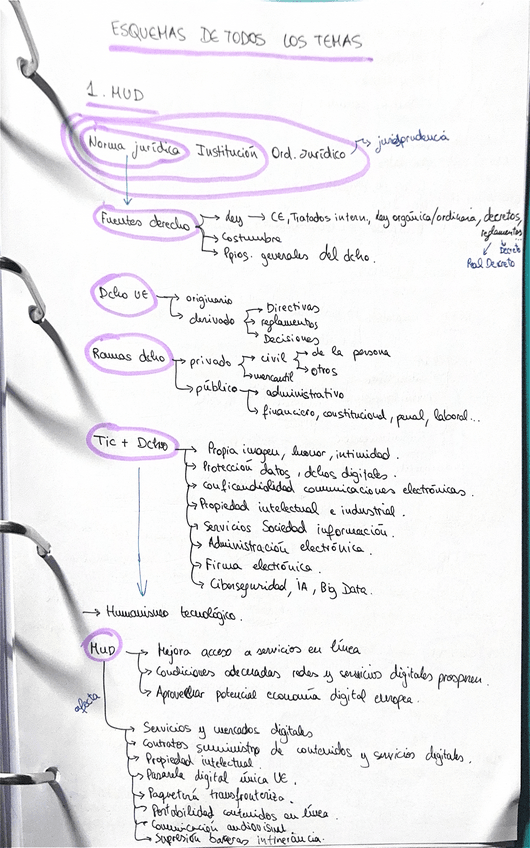 ESQUEMAS DE TODOS LOS TEMAS
1. MUD
Norma jurídica Institución Ord. Jurídico → jurisprudencia
Fuentes derecho → Ley → CE, Tratados intern, Ley orgánica/ordinaria, decretos,
reglamentos
Decreto
Real Decreto
→ Costumbre
→ Ppios. generales del dcho.
Dcho UE → originario
→ derivado → Directivas
→ reglamentos
→ Decisiones
Ramas dcho → privado → civil → de la persona
→ otros
→ mercantil
→ público → administrativo
→ financiero, constitucional, penal, laboral...
Tic + Dcho → Propia imagen, honor, intimidad.
→ Protección datos, dchos digitales.
→ Conficendialidad comunicaciones electrónicas.
→ Propiedad intelectual e industrial.
→ Servicios Sociedad información.
→ Administración electrónica.
→ Firma electrónica.
→ Ciberseguridad, IA, Big Data.
→ Humanismo tecnológico.
MUD → Mejora acceso a servicios en línea
→ Condiciones adecuadas redes y servicios digitales prosperen.
→ Aprovechar potencial economía digital europea.
afecta
→ Servicios y mercados digitales
→ Contratos suministro de contenidos y servicios digitales.
→ Propiedad intelectual.
→ Pasarela digital única UE.
→ Paquetería transfronteriza.
→ Portabilidad contenidos en línea.
→ Comunicación audiovisual
→ Supresión barreras intinerancia.